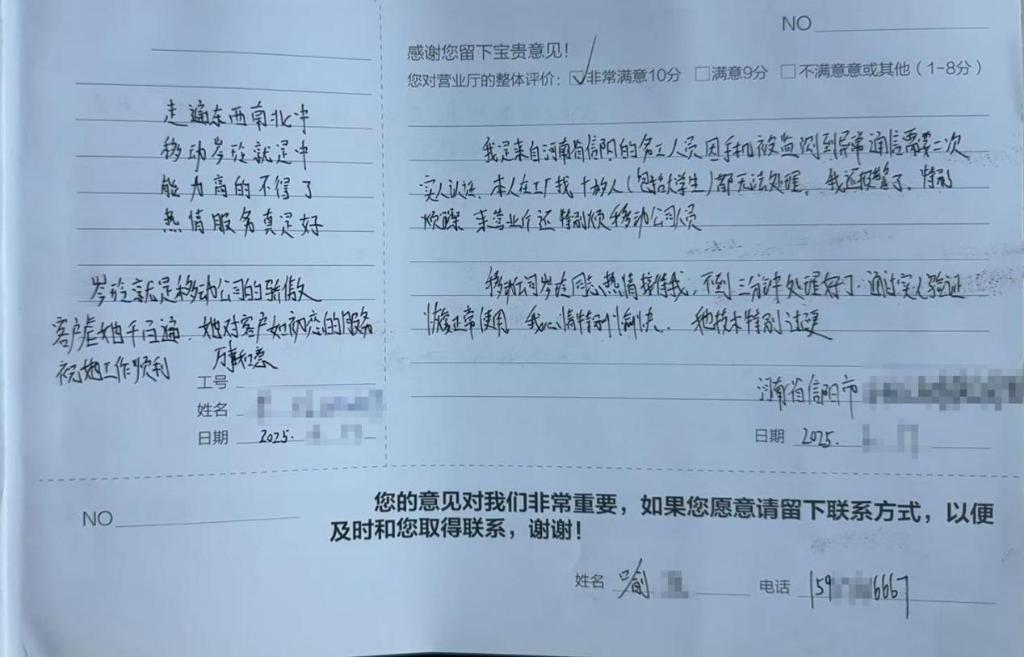 走遍东西南北中
移动岑玲就是中
能力高的不得了
热情服务真是好
岑玲就是移动公司的骄傲
客户虐她千百遍，她对客户如初恋的服务
祝她工作顺利 万事如意
工号
姓名
日期 2025.
NO
感谢您留下宝贵意见！
您对营业厅的整体评价：☑非常满意10分 □满意9分 □不满意意或其他（1-8分）
我是来自河南省信阳的务工人员因手机被监测到异常通信需要二次
实人认证，本人在工厂找十多人（包括大学生）都无法处理，我还报警了，特别
烦躁 来营业厅还特别烦移动公司人员
移动公司岑玲同志热情接待我，不到三分钟处理好了 通过实人验证
恢复正常使用 我心情特别愉快. 她技术特别过硬
河南省信阳市
日期 2025.
NO
您的意见对我们非常重要，如果您愿意请留下联系方式，以便
及时和您取得联系，谢谢！
姓名 喻 电话 159 6667